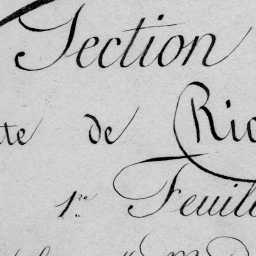 Section
te de Ric
1re Feuill